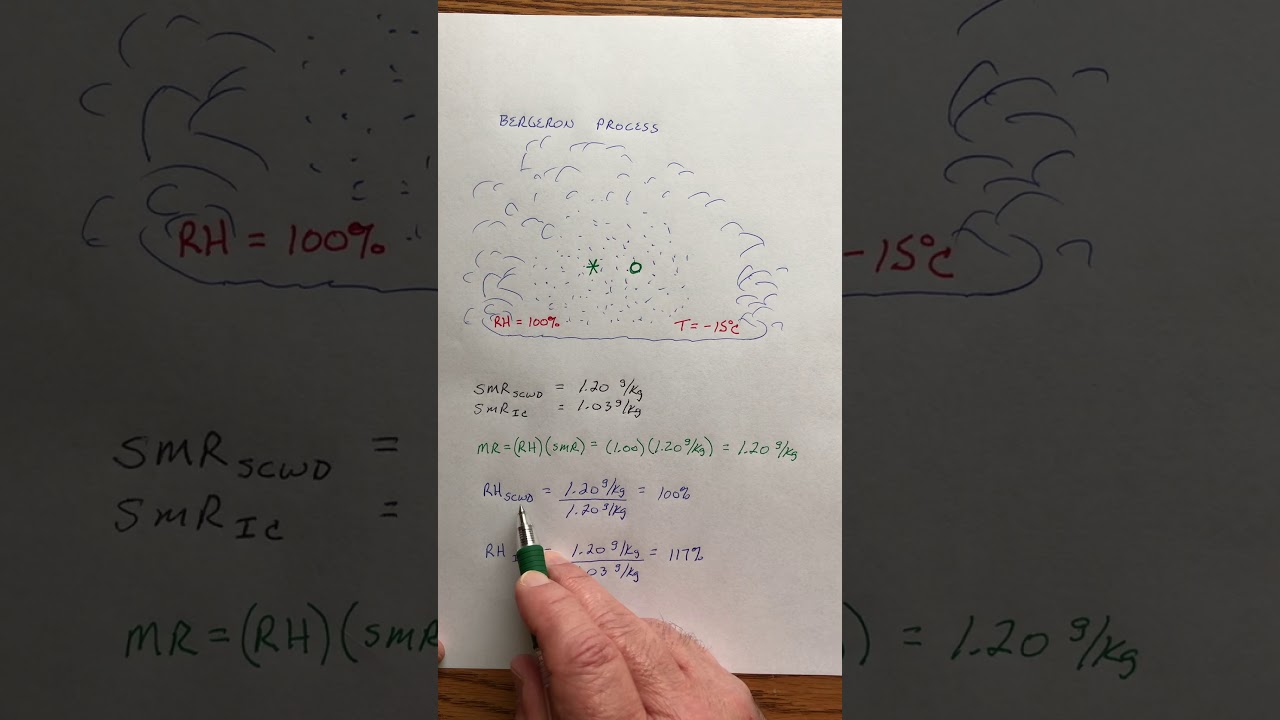 BERGERON PROCESS
RH = 100% T = -15°C
SMR SCWD = 1.20 g/kg
SMR IC = 1.03 g/kg
MR = (RH)(SMR) = (1.00)(1.20 g/kg) = 1.20 g/kg
RH SCWD = 1.20 g/kg = 100%
1.20 g/kg
RH = 1.20 g/kg = 117%
03 g/kg
RH = 100%
-15°C
SMR SCWD =
SMR IC =
MR = (RH)(SMR
) = 1.20 g/kg